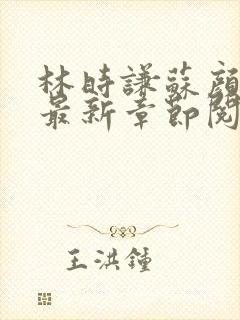 林時謙蘇顔
最新章節閱
王洪鐘